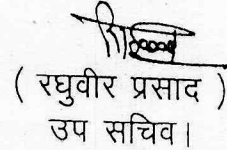 ( रघुवीर प्रसाद )
उप सचिव।